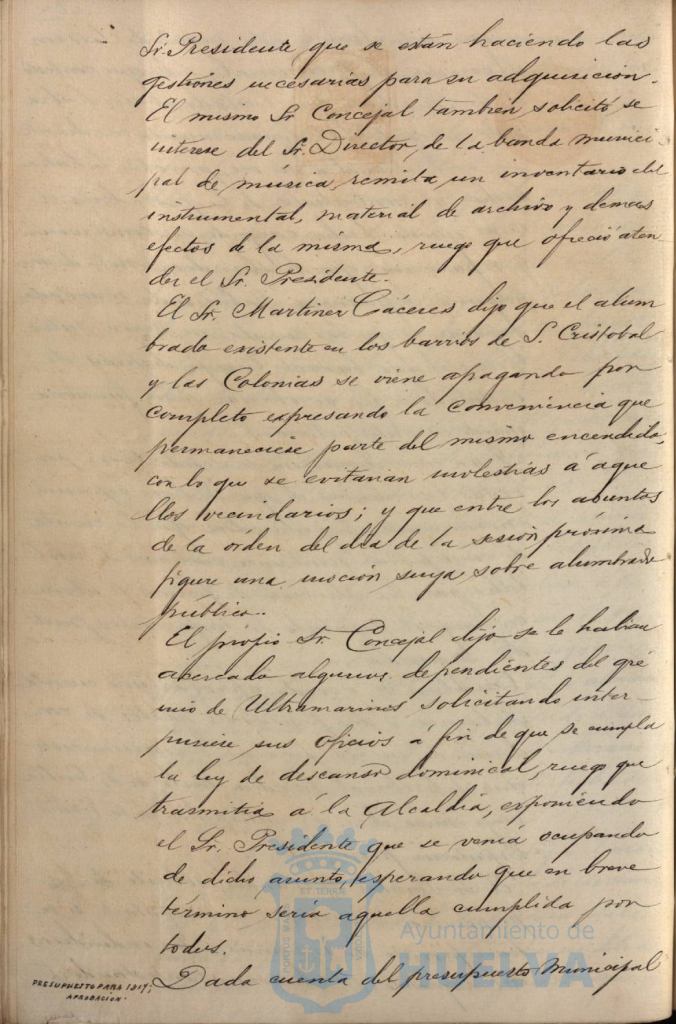 Sr. Presidente que se están haciendo las
gestiones necesarias para su adquisición.
El mismo Sr Concejal tambien solicitó se
interese del Sr. Director, de la banda munici
pal de música, remita un inventario del
instrumental, material de archivo y demas
efectos de la misma, ruego que ofreció aten
der el Sr. Presidente.
El Sr. Martinez Cáceres dijo que el alum
brado existente en los barrios de S. Cristobal
y las Colonias se viene apagando por
completo expresando la conveniencia que
permaneciese parte del mismo encendido,
con lo que se evitarian molestias á aque
llos vecindarios; y que entre los asuntos
de la órden del dia de la sesión próxima
figure una moción suya sobre alumbrado
público.
El propio Sr. Concejal dijo se le habian
acercado algunos dependientes del gré
mio de Ultramarinos solicitando inter-
pusiese sus oficios á fin de que se cumpla
la ley de descanso dominical, ruego que
trasmitia á la Alcaldia, exponiendo
el Sr. Presidente que se venia ocupando
de dicho asunto, esperando que en breve
término seria aquella cumplida por
todos.
PRESUPUESTO PARA 1917;
APROBACION.
Dada cuenta del presupuesto Municipal
Ayuntamiento de
HUELVA